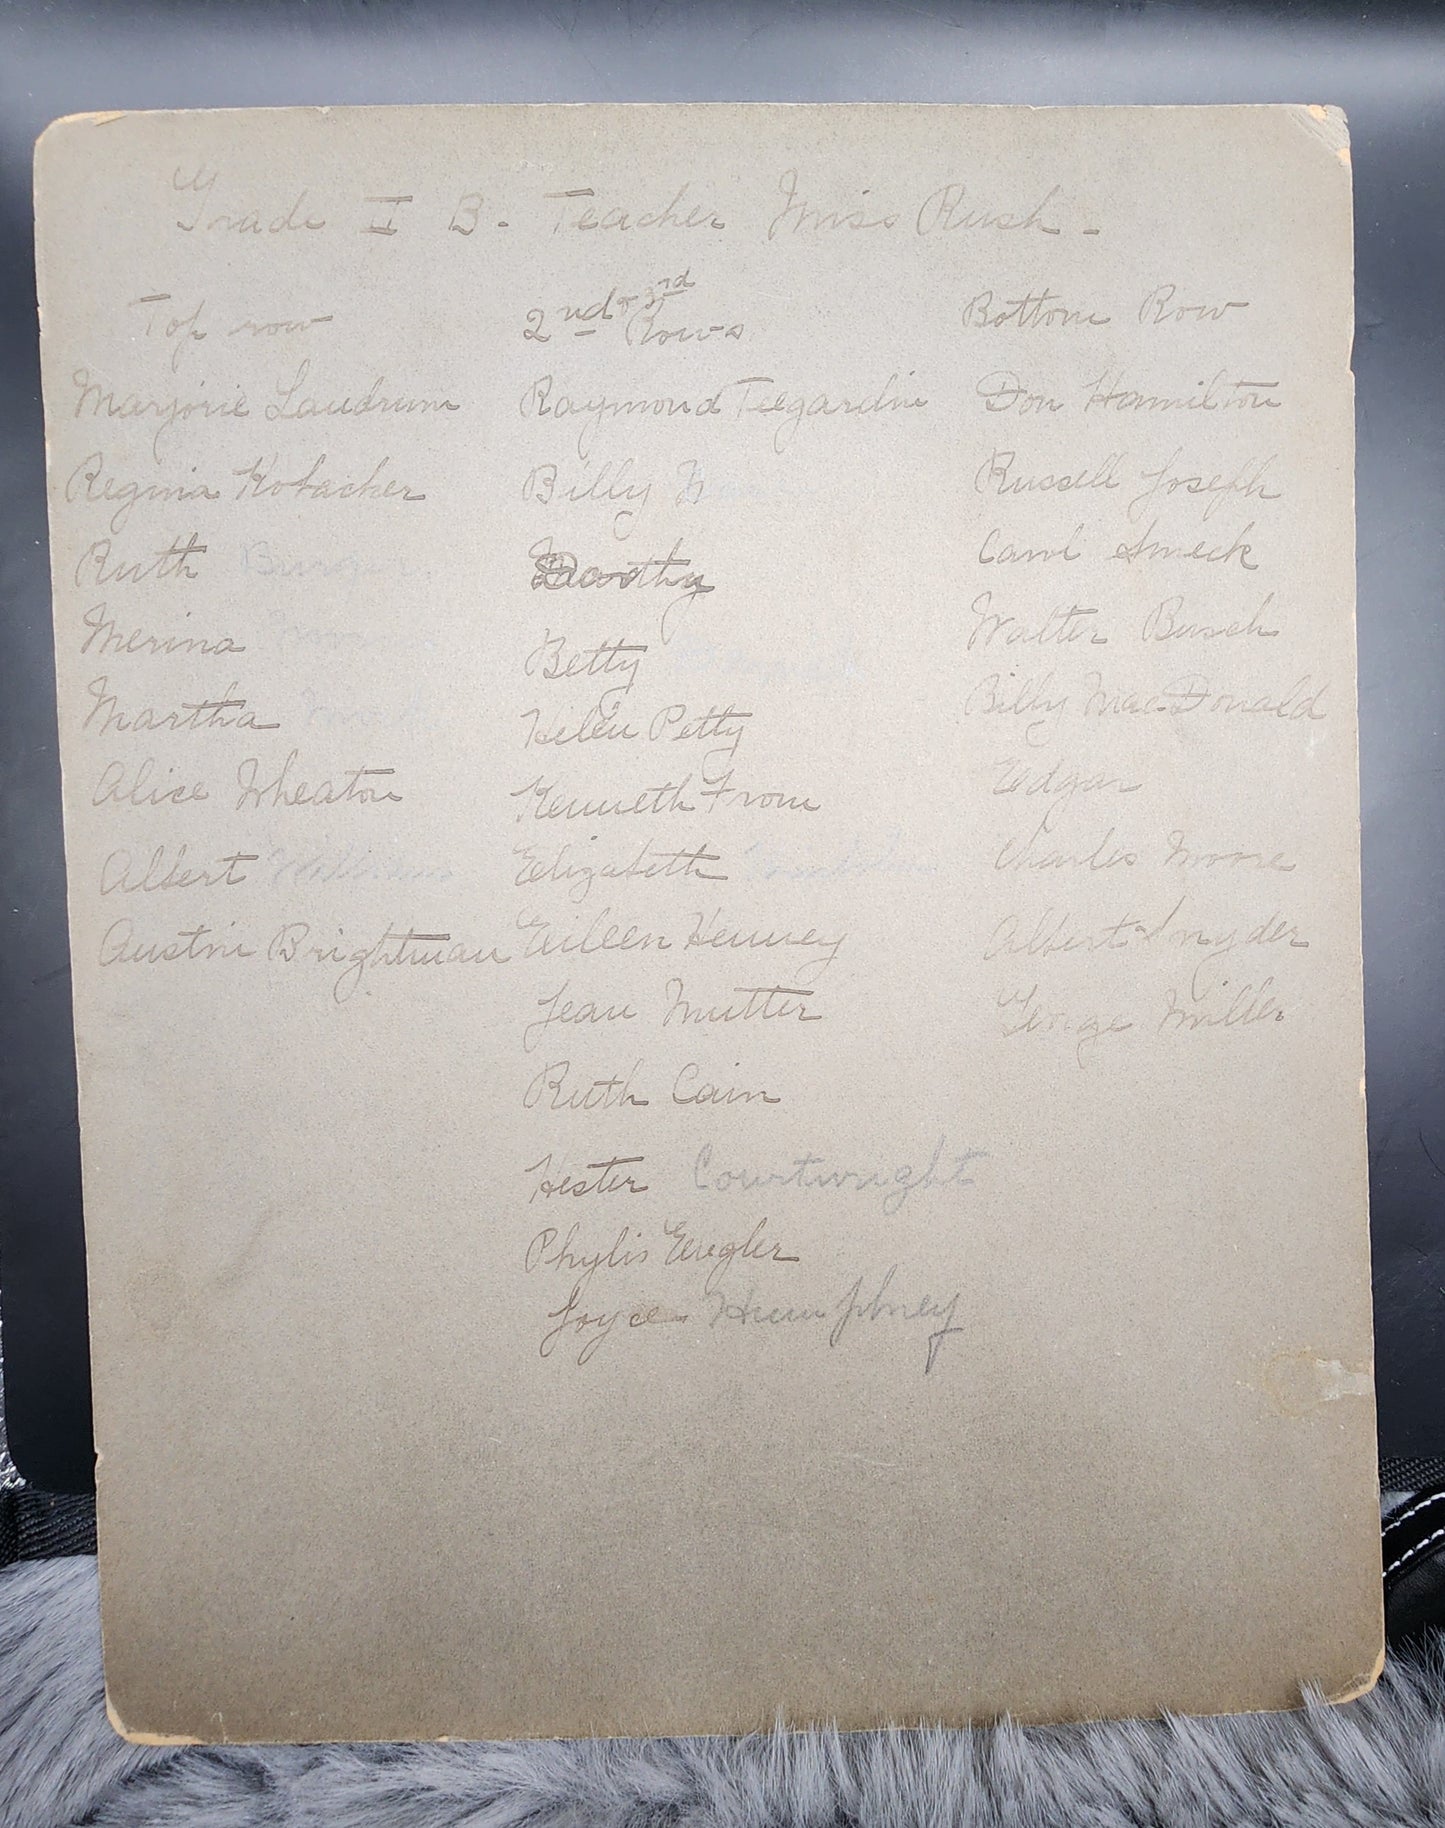 Grade II B. Teacher Miss Rush -
Top row
Marjorie Landrum
Regina Kobacker
Ruth
Merina
Martha
Alice Wheaton
Albert
Austin Brightman
2nd & 3rd
Rows
Raymond Teegardin
Billy
Dorothy
Betty
Helen Petty
Kenneth From
Elizabeth
Eileen Kenney
Jean Nutter
Ruth Cain
Hester Courtwright
Phylis Engler
Joyce Humphrey
Bottom Row
Don Hamilton
Russell Joseph
Carol Smeck
Walter Busch
Billy MacDonald
Edgar
Charles Moore
Albert Snyder
George Miller